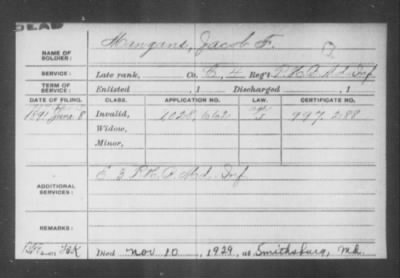 DEAD
NAME OF SOLDIER: Mangans, Jacob F.
SERVICE: Late rank, Co. E, 4 Reg't P.H.B. Md. Inf.
TERM OF SERVICE: Enlisted , 1 Discharged , 1
DATE OF FILING. CLASS. APPLICATION NO. LAW. CERTIFICATE NO.
1891 June 8 Invalid, 1028,662 997,288
Widow,
Minor,
ADDITIONAL SERVICES: E 3 P.H.B. Md. Inf
REMARKS:
Died Nov 10, 1929, at Smithsburg, Md.